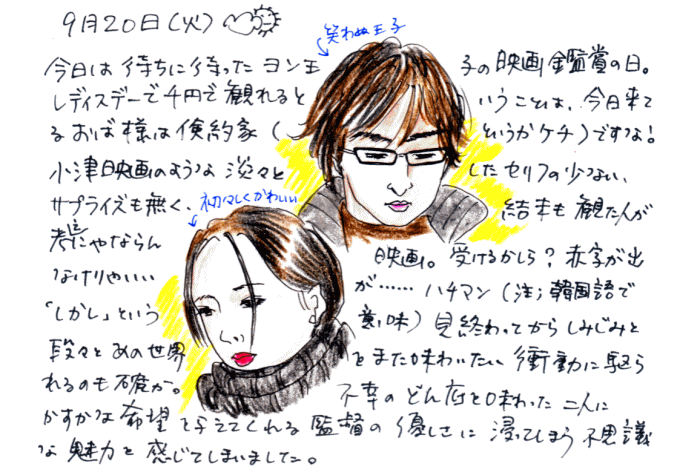 9月20日(火)
笑わぬ王子
今日は待ちに待ったヨン王子の映画鑑賞の日。
レディスデーで千円で観れるということは、今日来て
るおば様は倹約家(というかケチ)ですつよ!
小津映画のような淡々としたセリフの少ない、
サプライズも無く、結末も観た人が
初々しくかわいい
考えにゃならん映画。受けるかしら?赤字が出
なけりゃいいが……ハチマン(注;韓国語で
「しかし」という意味)見終わってからしみじみと
段々とあの世界をまた味わいたい衝動に駆ら
れるのも確か。不幸のどん底を味わった二人に
かすかな希望を与えてくれる監督の優しさに浸ってしまう不思議
な魅力を感じてしまいました。